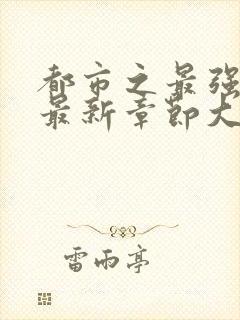 都市之最强
最新章节大
雷雨亭